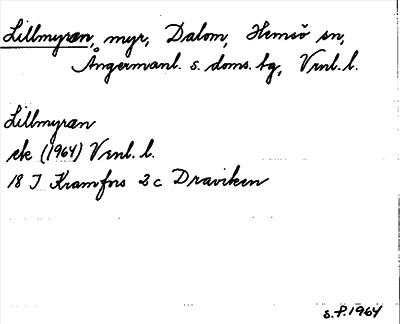 Lillmyran, myr, Dalom, Hemsö sn,
Ångermanl. s. doms. tg, Vrnl. l.
Lillmyran
ek (1964) Vrnl. l.
18 I Kramfors 2c Draviken
s.P.1964